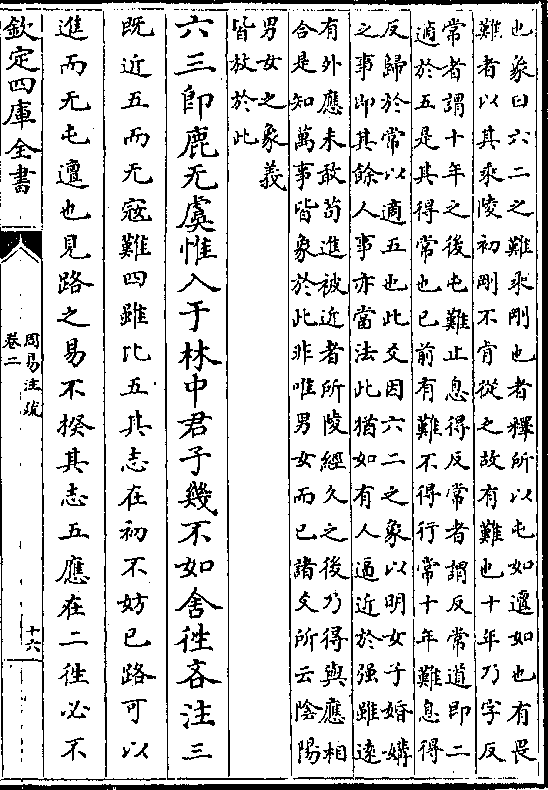 也象曰六二之難乘剛也者釋所以屯如邅如也有畏
難者以其乘陵初剛不肯從之故有難也十年乃字反
常者謂十年之後屯難止息得反常者謂反常道即二
適於五是其得常也已前有難不得行常十年難息得
反歸於常以適五也此爻因六二之象以明女子婚媾
之事即其餘人事亦當法此猶如有人逼近於强雖遠
有外應未敢苟進被近者所陵經久之後乃得與應相
合是知萬事皆象於此非唯男女而已諸爻所云陰陽
男女之象義
皆放於此
六三即鹿无虞惟入于林中君子幾不如舍往吝注三
既近五而无寇難四雖比五其志在初不妨已路可以
進而无屯邅也見路之易不揆其志五應在二往必不
欽定四庫全書
周易注疏
卷二
十六